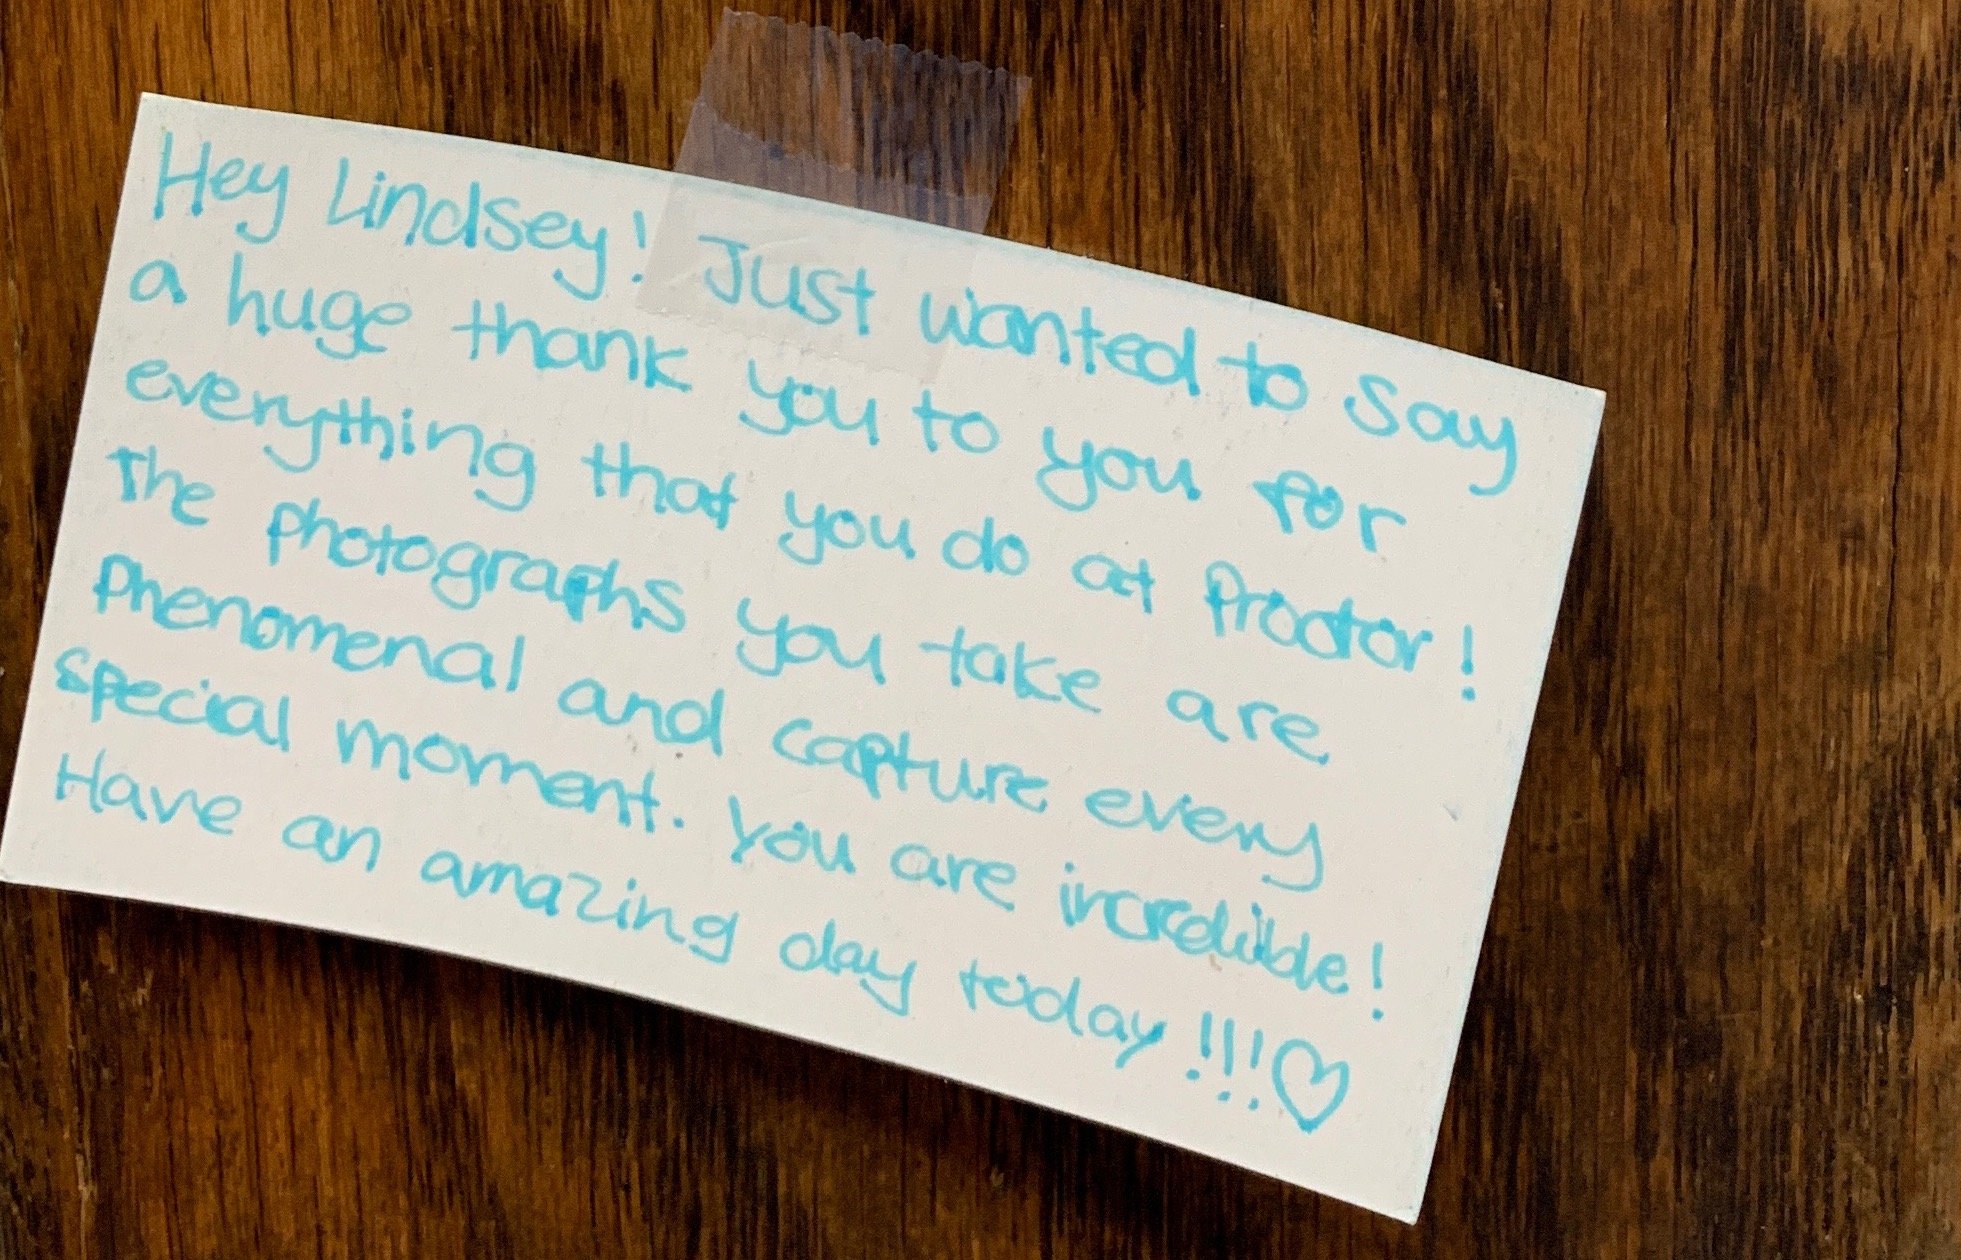 Hey Lindsey! Just wanted to say
a huge thank you to you for
everything that you do at Proctor!
The photographs you take are
phenomenal and capture every
special moment. You are incredible!
Have an amazing day today!!!♡